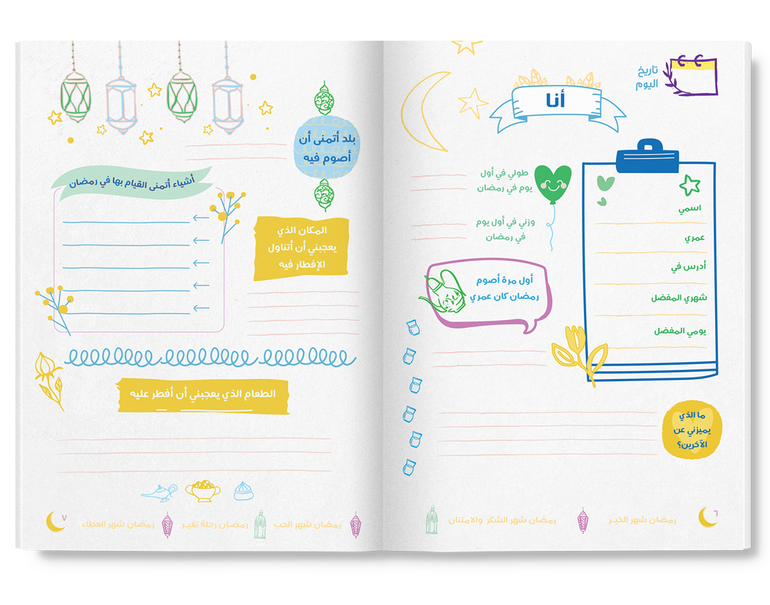 تاريخ
اليوم
أنا
اسمي
عمري
أدرس في
شهري المفضل
يومي المفضل
طولي في أول
يوم في رمضان
وزني في أول يوم
في رمضان
أول مرة أصوم
رمضان كان عمري
ما الذي
يميزني عن
الآخرين؟
٦
رمضان شهر الخير
رمضان شهر الشكر والامتنان
بلد أتمنى أن
أصوم فيه
أشياء أتمنى القيام بها في رمضان
المكان الذي
يعجبني أن أتناول
الإفطار فيه
الطعام الذي يعجبني أن أفطر عليه
رمضان شهر الحب
رمضان رحلة تغيير
رمضان شهر العطاء
٧